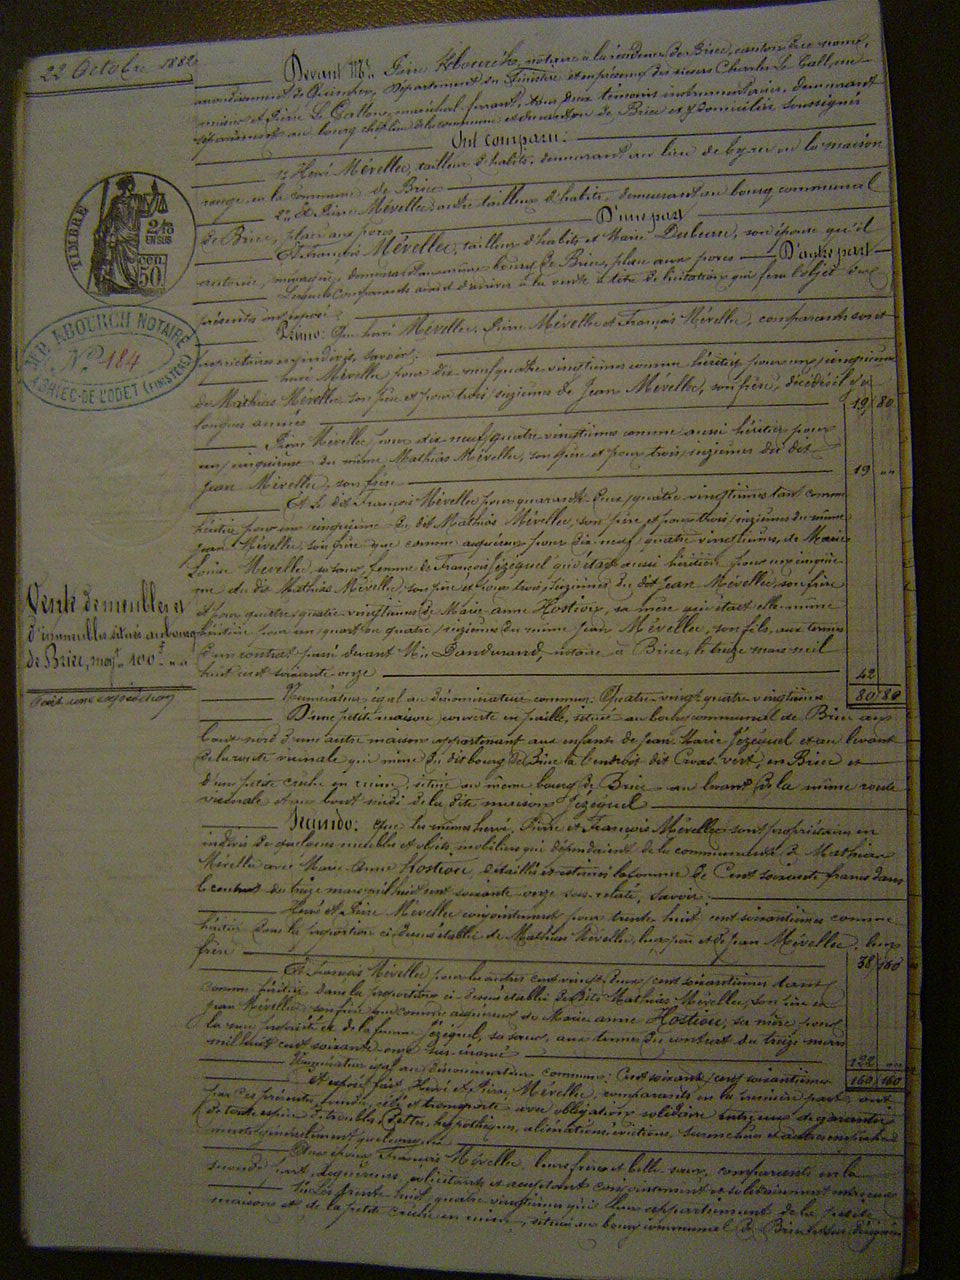 22 Octobre 1882
Devant Me Pierre Abourch, notaire à la résidence de Briec, canton de ce nom,
arrondissement de Quimper, Département du Finistère et en présence des sieurs Charles Le Gall
et Pierre Le Gallou, maréchal ferrant, tous deux témoins instrumentaires, demeurant
séparément au bourg chef lieu de la commune et du canton de Briec et y domiciliés soussignés
Ont comparu:
1° Hervé Mévellec, tailleur d'habits, demeurant au lieu de ou la maison
rouge, en la commune de Briec
2° Et Pierre Mévellec, autre tailleur d'habits, demeurant au bourg communal
de Briec, place aux porcs
D'une part
Et François Mévellec, tailleur d'habits et Marie son épouse qu'il
autorise, demeurant au même bourg de Briec, place aux porcs
D'autre part
Lesquels comparants avant d'arriver à la vente à titre de licitation qui fera l'objet des
présentes ont exposé:
TIMBRE
2/10
EN SUS
50 CEN.
M. P. ABOURCH NOTAIRE
N° 184
A BRIEC-DE-L'ODET (FINISTÈRE)
Primo: Que Hervé Mévellec, Pierre Mévellec et François Mévellec, comparants sont
propriétaires en indivis, savoir:
Hervé Mévellec pour dix neuf quatre vingtièmes comme héritier pour un cinquième
de Mathias Mévellec, son père et pour trois seizièmes de Jean Mévellec, son frère, décédés il y a
longues années
19 80
Pierre Mévellec pour dix neuf quatre vingtièmes comme aussi héritier pour
un cinquième du même Mathias Mévellec, son père et pour trois seizièmes du dit
Jean Mévellec, son frère
19 ""
Et le dit François Mévellec pour quarante deux quatre vingtièmes tant comme
héritier pour un cinquième du dit Mathias Mévellec, son père et pour trois seizièmes du même
Jean Mévellec, son frère que comme acquéreur pour dix neuf quatre vingtièmes, de Marie
Louise Mévellec, sa sœur, femme de François Jézéquel qui était aussi héritière pour un cinquiè-
me du dit Mathias Mévellec, son père et pour trois seizièmes du dit Jean Mévellec, son frère
et pour quatre quatre vingtièmes de Marie-Anne Hostiou, sa mère qui était elle-même
héritière pour un quart ou quatre seizièmes du même Jean Mévellec, son fils, aux termes
d'un contrat passé devant Me Dandurand, notaire à Briec, le treize mars mil
huit cent soixante onze
42
Vente de meubles et
d'immeubles situés au bourg
de Briec, moyt 100f
Fait une expédition
Numérateur égal au dénominateur commun: Quatre-vingt quatre vingtièmes
80 80
D'une petite maison, couverte en paille, située au bourg communal de Briec au
bout nord d'une autre maison appartenant aux enfants de Jean Marie Jézéquel et au levant
de la route vicinale qui mène du dit bourg de Briec à l'endroit dit Croas-vert, en Briec et
d'une petite crèche en ruine, située au même bourg de Briec au levant de la même route
vicinale et au bout midi de la dite maison Jézéquel
Secundo: Que les mêmes Hervé, Pierre et François Mévellec sont propriétaires en
indivis de quelques meubles et objets mobiliers qui dépendaient de la communauté de Mathias
Mévellec avec Marie-Anne Hostiou, détaillés et estimés la somme de Cent soixante francs dans
le contrat du treize mars mil huit cent soixante-onze sus-relaté, savoir:
Hervé et Pierre Mévellec conjointement pour trente huit cent soixantièmes comme
héritiers dans la proportion ci-dessus établie de Mathias Mévellec, leur père et de Jean Mévellec, leur
frère
38 160
Et François Mévellec pour les autres cent vingt deux cent soixantièmes tant
comme héritier dans la proportion ci-dessus établie desdits Mathias Mévellec, son père et
Jean Mévellec, son frère que comme acquéreur de Marie anne Hostiou, sa mère pour
propriété et de la femme Jézéquel, sa sœur, aux termes du contrat du treize mars
mil huit cent soixante-onze sus-énoncé
122
Numérateur égal au dénominateur commun: Cent soixante cent soixantièmes
160 160
Et exposé fait, Hervé et Pierre Mévellec, comparants en la première part, ont
par ces présentes, vendu, cédé et transporté avec obligation solidaire entr'eux de garantir
de toute espèce de troubles, dettes, hypothèques, aliénations, évictions, surenchère et autres empêche-
ments généralement quelconques
Aux époux François Mévellec, leurs frère et belle sœur, comparants en la
seconde part, acquéreurs, sollicitants et acceptant conjointement et solidairement entr'eux
Les trente huit quatre vingtièmes qui leur appartiennent de la petite
maison et de la petite crèche en ruine, situées au bourg communal de Briec